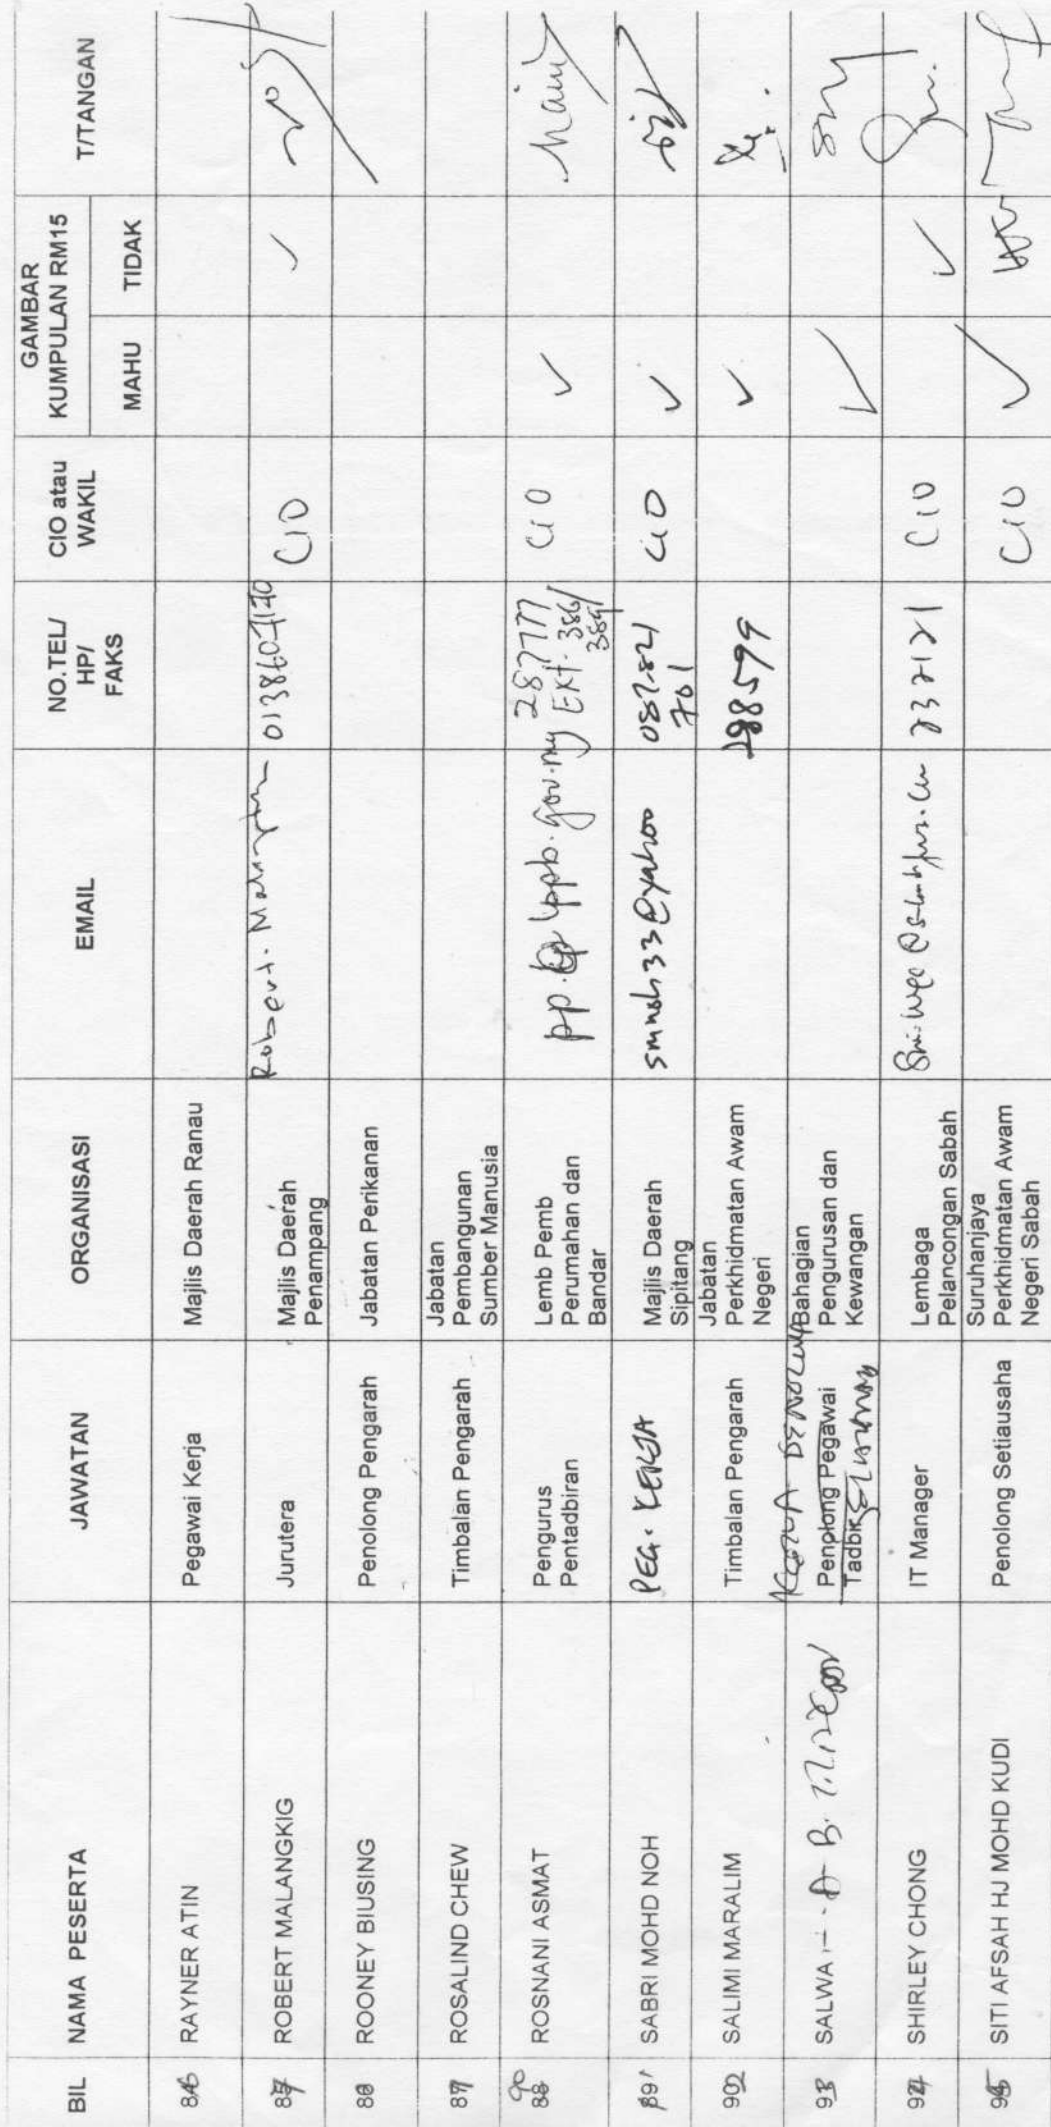 BIL NAMA PESERTA JAWATAN ORGANISASI EMAIL NO.TEL/ HP/ FAKS CIO atau WAKIL GAMBAR KUMPULAN RM15 T/TANGAN
MAHU TIDAK
RAYNER ATIN Pegawai Kerja Majlis Daerah Ranau
ROBERT MALANGKIG Jurutera Majlis Daerah Penampang Robert. CIO ✓
ROONEY BIUSING Penolong Pengarah Jabatan Perikanan
ROSALIND CHEW Timbalan Pengarah Jabatan Pembangunan Sumber Manusia
90 88 ROSNANI ASMAT Pengurus Pentadbiran Lemb Pemb Perumahan dan Bandar lppb.gov.my 287777 EXT. 386/ 389/ CIO ✓
SABRI MOHD NOH PEG. KERJA Majlis Daerah Sipitang smnoh33@yahoo 087-821 701 CIO ✓
SALIMI MARALIM Timbalan Pengarah Jabatan Perkhidmatan Awam Negeri 288599 ✓
SALWA Penolong Pegawai Tadbir Bahagian Pengurusan dan Kewangan ✓
SHIRLEY CHONG IT Manager Lembaga Pelancongan Sabah 232121 CIO ✓
SITI AFSAH HJ MOHD KUDI Penolong Setiausaha Suruhanjaya Perkhidmatan Awam Negeri Sabah CIO ✓